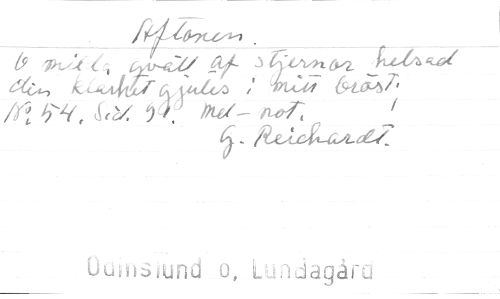 Aftonen.
O milda qväll af stjernor helsad
din klarhet gjutes i mitt bröst!
No 54. Sid. 91. med not.
G. Reichardt.
Odinslund o, Lundagård